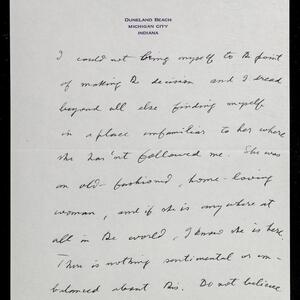 DUNELAND BEACH
MICHIGAN CITY
INDIANA
I could not bring myself to the point
of making the decision and I dread
beyond all else finding myself
in a place unfamiliar to her where
she hasn't followed me. She was
an old-fashioned, home-loving
woman, and if she is anywhere at
all in the world, I know she is here.
There is nothing sentimental or un-
balanced about this. Do not believe